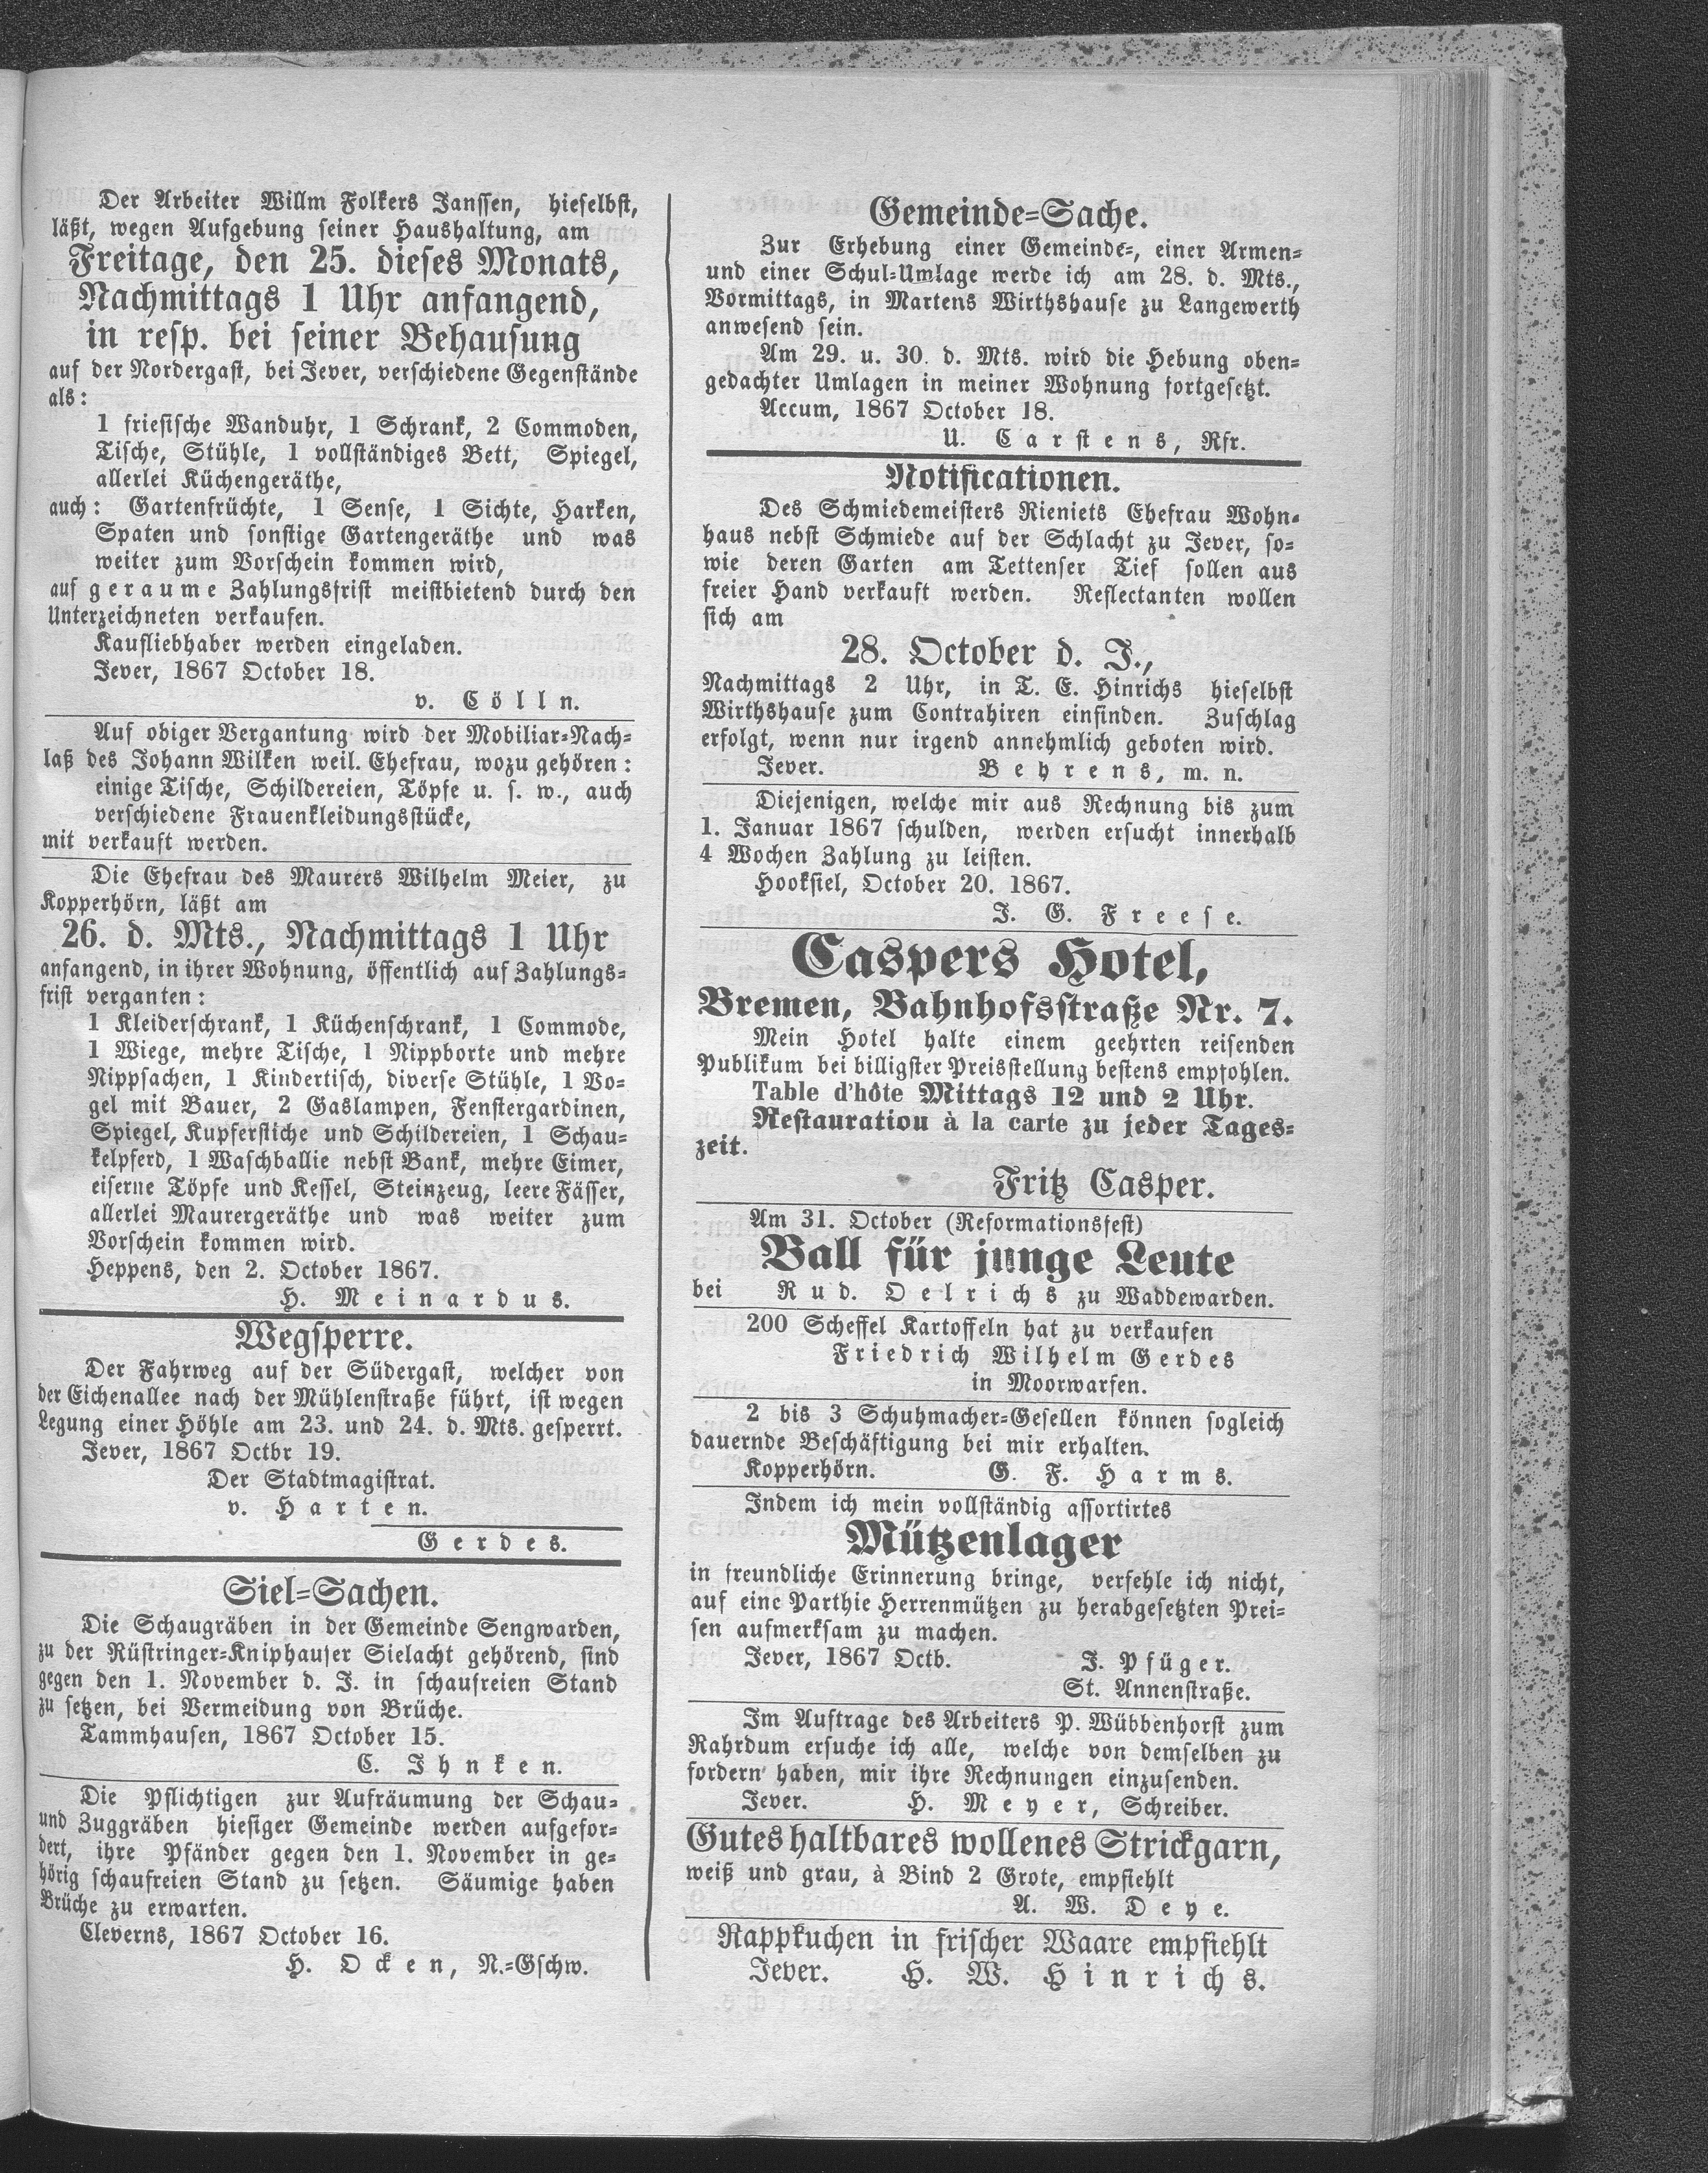 Der Arbeiter Willm Folkers Janssen, hieselbst,
läßt, wegen Aufgebung seiner Haushaltung, am
Freitage, den 25. dieses Monats,
Nachmittags 1 Uhr anfangend,
in resp. bei seiner Behausung
auf der Nordergast, bei Jever, verschiedene Gegenstände
als:
1 friesische Wanduhr, 1 Schrank, 2 Commoden,
Tische, Stühle, 1 vollständiges Bett, Spiegel,
allerlei Küchengeräthe,
auch: Gartenfrüchte, 1 Sense, 1 Sichte, Harken,
Spaten und sonstige Gartengeräthe und was
weiter zum Vorschein kommen wird,
auf geraume Zahlungsfrist meistbietend durch den
Unterzeichneten verkaufen.
Kaufliebhaber werden eingeladen.
Jever, 1867 October 18.
v. Cölln.
Auf obiger Vergantung wird der Mobiliar=Nach=
laß des Johann Wilken weil. Ehefrau, wozu gehören:
einige Tische, Schildereien, Töpfe u. s. w., auch
verschiedene Frauenkleidungsstücke,
mit verkauft werden.
Die Ehefrau des Maurers Wilhelm Meier, zu
Kopperhörn, läßt am
26. d. Mts., Nachmittags 1 Uhr
anfangend, in ihrer Wohnung, öffentlich auf Zahlungs=
frist verganten:
1 Kleiderschrank, 1 Küchenschrank, 1 Commode,
1 Wiege, mehre Tische, 1 Nippborte und mehre
Nippsachen, 1 Kindertisch, diverse Stühle, 1 Vo=
gel mit Bauer, 2 Gaslampen, Fenstergardinen,
Spiegel, Kupferstiche und Schildereien, 1 Schau=
kelpferd, 1 Waschballie nebst Bank, mehre Eimer,
eiserne Töpfe und Kessel, Steinzeug, leere Fässer,
allerlei Maurergeräthe und was weiter zum
Vorschein kommen wird.
Heppens, den 2. October 1867.
H. Meinardus.
Wegsperre.
Der Fahrweg auf der Südergast, welcher von
der Eichenallee nach der Mühlenstraße führt, ist wegen
Legung einer Höhle am 23. und 24. d. Mts. gesperrt.
Jever, 1867 Octbr 19.
Der Stadtmagistrat.
v. Harten.
Gerdes.
Siel=Sachen.
Die Schaugräben in der Gemeinde Sengwarden,
zu der Rüstringer=Kniphauser Sielacht gehörend, sind
gegen den 1. November d. J. in schaufreien Stand
zu setzen, bei Vermeidung von Brüche.
Tammhausen, 1867 October 15.
C. Ihnken.
Die Pflichtigen zur Aufräumung der Schau=
und Zuggräben hiesiger Gemeinde werden aufgefor=
dert, ihre Pfänder gegen den 1. November in ge=
hörig schaufreien Stand zu setzen. Säumige haben
Brüche zu erwarten.
Cleverns, 1867 October 16.
H. Ocken, N.=Gschw.
Gemeinde=Sache.
Zur Erhebung einer Gemeinde=, einer Armen=
und einer Schul=Umlage werde ich am 28. d. Mts.,
Vormittags, in Martens Wirthshause zu Langewerth
anwesend sein.
Am 29. u. 30. d. Mts. wird die Hebung oben=
gedachter Umlagen in meiner Wohnung fortgesetzt.
Accum, 1867 October 18.
U. Carstens, Rfr.
Notificationen.
Des Schmiedemeisters Rieniets Ehefrau Wohn=
haus nebst Schmiede auf der Schlacht zu Jever, so=
wie deren Garten am Tettenser Tief sollen aus
freier Hand verkauft werden. Reflectanten wollen
sich am
28. October d. J.,
Nachmittags 2 Uhr, in T. E. Hinrichs hieselbst
Wirthshause zum Contrahiren einfinden. Zuschlag
erfolgt, wenn nur irgend annehmlich geboten wird.
Jever. Behrens, m. n.
Diejenigen, welche mir aus Rechnung bis zum
1. Januar 1867 schulden, werden ersucht innerhalb
4 Wochen Zahlung zu leisten.
Hooksiel, October 20. 1867.
J. G. Freese.
Caspers Hotel,
Bremen, Bahnhofsstraße Nr. 7.
Mein Hotel halte einem geehrten reisenden
Publikum bei billigster Preisstellung bestens empfohlen.
Table d'hôte Mittags 12 und 2 Uhr.
Restauration à la carte zu jeder Tages=
zeit.
Fritz Casper.
Am 31. October (Reformationsfest)
Ball für junge Leute
bei Rud. Oelrichs zu Waddewarden.
200 Scheffel Kartoffeln hat zu verkaufen
Friedrich Wilhelm Gerdes
in Moorwarfen.
2 bis 3 Schuhmacher=Gesellen können sogleich
dauernde Beschäftigung bei mir erhalten.
Kopperhörn. G. F. Harms.
Indem ich mein vollständig assortirtes
Mützenlager
in freundliche Erinnerung bringe, verfehle ich nicht,
auf eine Parthie Herrenmützen zu herabgesetzten Prei=
sen aufmerksam zu machen.
Jever, 1867 Octb. J. Pfüger.
St. Annenstraße.
Im Auftrage des Arbeiters P. Wübbenhorst zum
Rahrdum ersuche ich alle, welche von demselben zu
fordern haben, mir ihre Rechnungen einzusenden.
Jever. H. Meyer, Schreiber.
Gutes haltbares wollenes Strickgarn,
weiß und grau, à Bind 2 Grote, empfiehlt
A. W. Deye.
Rappkuchen in frischer Waare empfiehlt
Jever. H. W. Hinrichs.